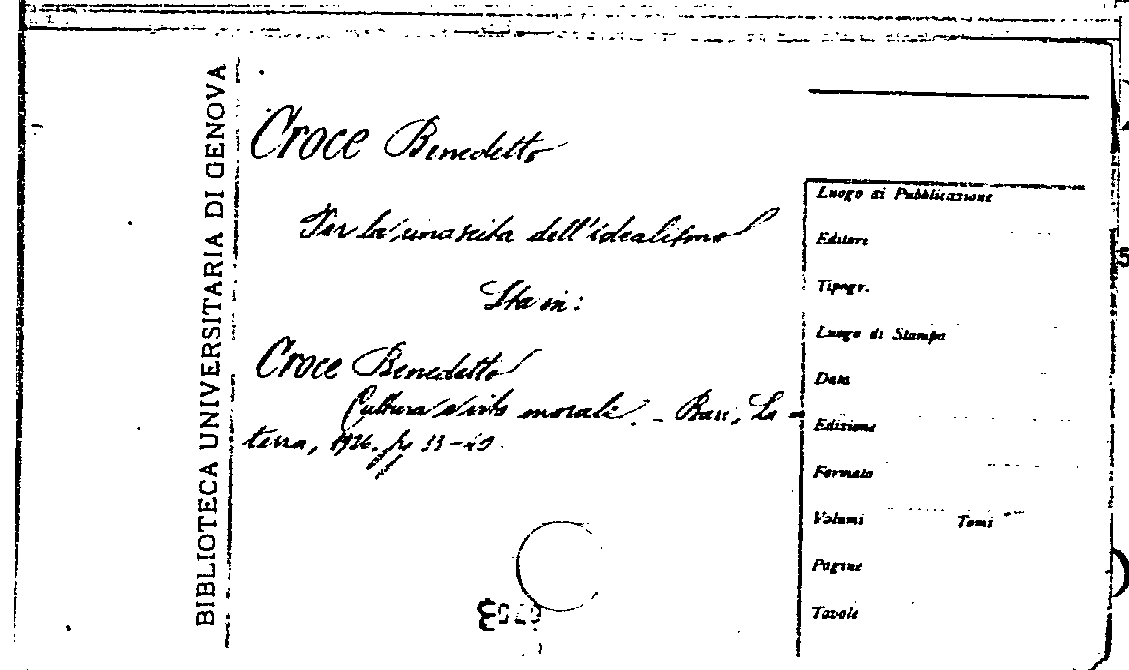 BIBLIOTECA UNIVERSITARIA DI GENOVA
Croce Benedetto
Per la rinascita dell'idealismo
Sta in:
Croce Benedetto
Cultura e vita morale. - Bari, La =
terra, 1926. pp 33-40
Luogo di Pubblicazione
Editore
Tipogr.
Luogo di Stampa
Data
Edizione
Formato
Volumi Tomi
Pagine
Tavole